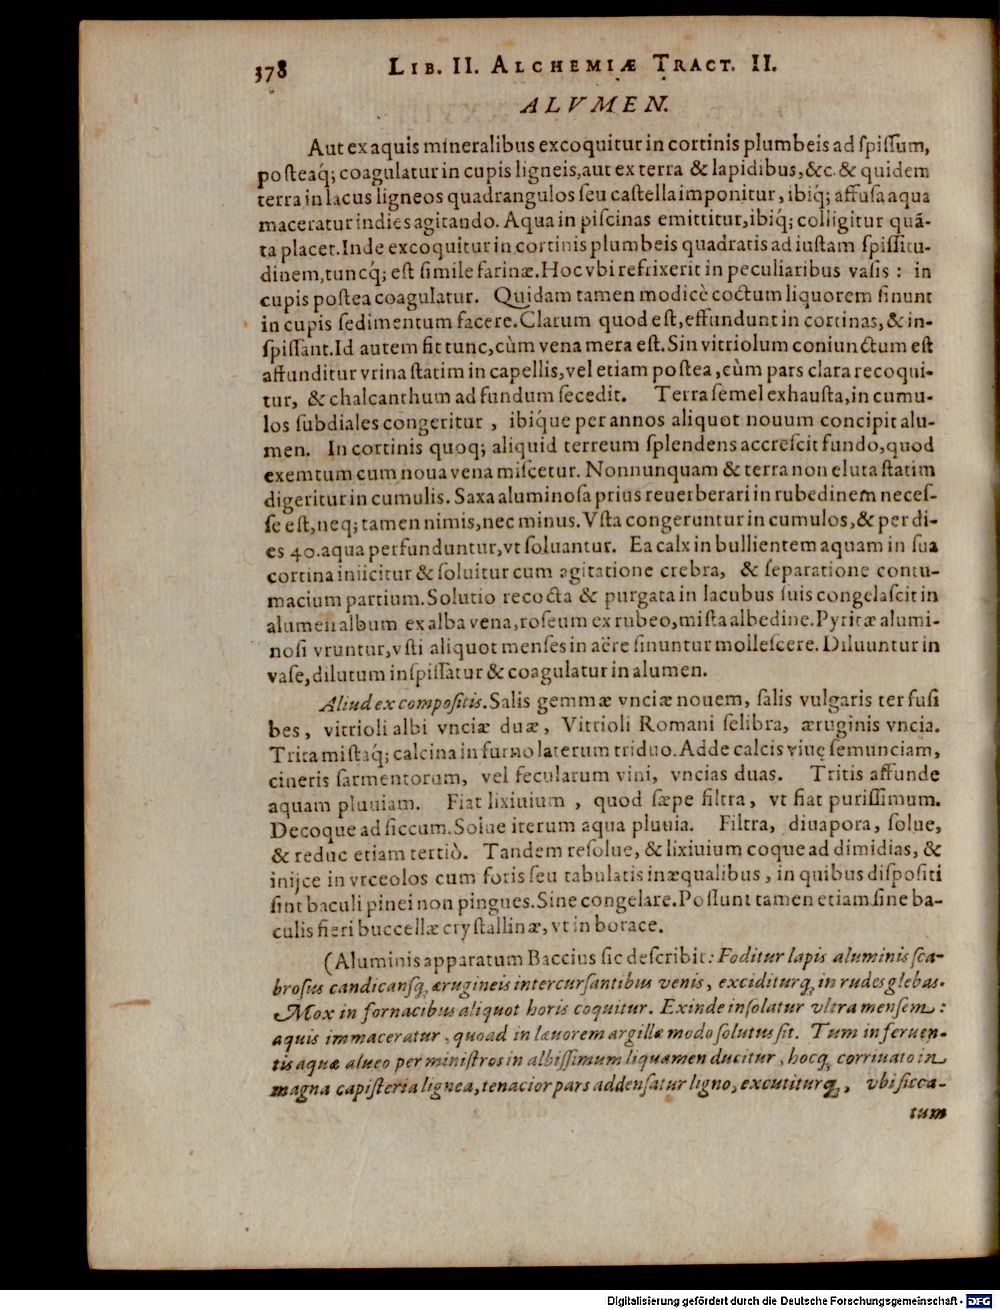 378 LIB. II. ALCHEMIÆ TRACT. II.
ALVMEN.
Aut ex aquis mineralibus excoquitur in cortinis plumbeis ad ſpiſſum,
poſteaq́; coagulatur in cupis ligneis, aut ex terra & lapidibus, &c. & quidem
terra in lacus ligneos quadrangulos ſeu caſtella imponitur, ibiq́; affuſa aqua
maceratur indies agitando. Aqua in piſcinas emittitur, ibiq́; colligitur quã-
ta placet. Inde excoquitur in cortinis plumbeis quadratis ad iuſtam ſpiſſitu-
dinem, tuncq́; eſt ſimile farinæ. Hoc vbi refrixerit in peculiaribus vaſis : in
cupis poſtea coagulatur. Quidam tamen modicè coctum liquorem ſinunt
in cupis ſedimentum facere. Clarum quod eſt, effundunt in cortinas, & in-
ſpiſſant. Id autem fit tunc, cùm vena mera eſt. Sin vitriolum coniunctum eſt
affunditur vrina ſtatim in capellis, vel etiam poſtea, cùm pars clara recoqui-
tur, & chalcanthum ad fundum ſecedit. Terra ſemel exhauſta, in cumu-
los ſubdiales congeritur, ibiq́ue per annos aliquot nouum concipit alu-
men. In cortinis quoq; aliquid terreum ſplendens accreſcit fundo, quod
exemtum cum noua vena miſcetur. Nonnunquam & terra non eluta ſtatim
digeritur in cumulis. Saxa aluminoſa prius reuerberari in rubedinem neceſ-
ſe eſt, neq; tamen nimis, nec minus. Vſta congeruntur in cumulos, & per di-
es 40. aqua perfunduntur, vt ſoluantur. Ea calx in bullientem aquam in ſua
cortina iniicitur & ſoluitur cum agitatione crebra, & ſeparatione contu-
macium partium. Solutio recocta & purgata in lacubus ſuis congelaſcit in
alumen album ex alba vena, roſeum ex rubeo, miſta albedine. Pyritæ alumi-
noſi vruntur, vſti aliquot menſes in aëre ſinuntur molleſcere. Diluuntur in
vaſe, dilutum inſpiſſatur & coagulatur in alumen.
Aliud ex compoſitis. Salis gemmæ vnciæ nouem, ſalis vulgaris ter fuſi
bes, vitrioli albi vnciæ duæ, Vitrioli Romani ſelibra, æruginis vncia.
Trita miſtaq́; calcina in furno laterum triduo. Adde calcis viuę ſemunciam,
cineris ſarmentorum, vel fecularum vini, vncias duas. Tritis affunde
aquam pluuiam. Fiat lixiuium, quod ſæpe filtra, vt fiat puriſſimum.
Decoque ad ſiccum. Solue iterum aqua pluuia. Filtra, diuapora, ſolue,
& reduc etiam tertiò. Tandem reſolue, & lixiuium coque ad dimidias, &
inijce in vrceolos cum foris ſeu tabulatis inæqualibus, in quibus diſpoſiti
ſint baculi pinei non pingues. Sine congelare. Poſſunt tamen etiam ſine ba-
culis fieri buccellæ cryſtallinæ, vt in borace.
(Aluminis apparatum Baccius ſic deſcribit: Foditur lapis aluminis ſca-
broſus candicanſq́, ærugineis intercurſantibus venis, exciditurq́, in rudes glebas.
Mox in fornacibus aliquot horis coquitur. Exinde inſolatur vltra menſem :
aquis immaceratur, quoad in læuorem argillæ modo ſolutus ſit. Tum in feruen-
tis aquæ alueo per miniſtros in albiſſimum liquamen ducitur, hocq́ corriuato in
magna capiſteria lignea, tenacior pars addenſatur ligno, excutiturq́, vbi ſicca-
tum
Digitalisierung gefördert durch die Deutsche Forschungsgemeinschaft - DFG